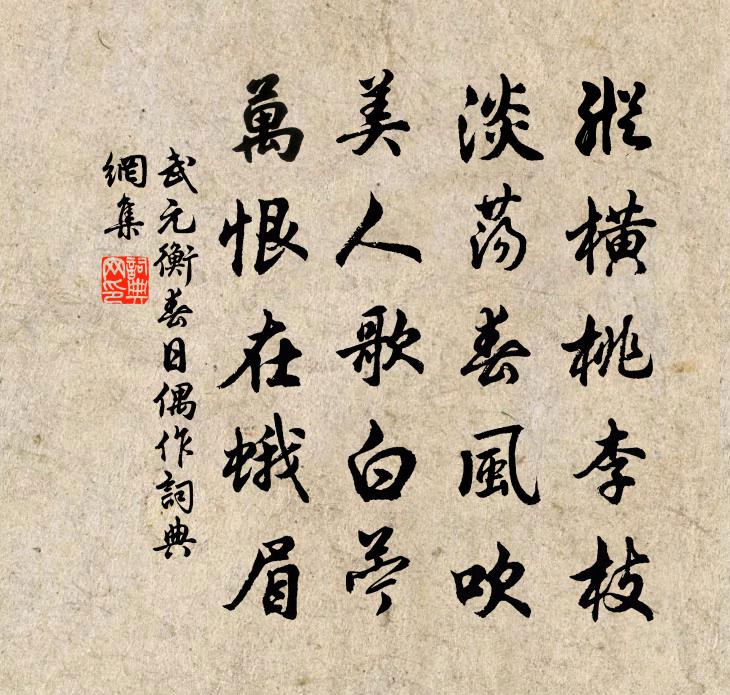 縱橫桃李枝
淡蕩春風吹
美人歌白苧
萬恨在蛾眉
武元衡春日偶作詞典
網集
詞典網印